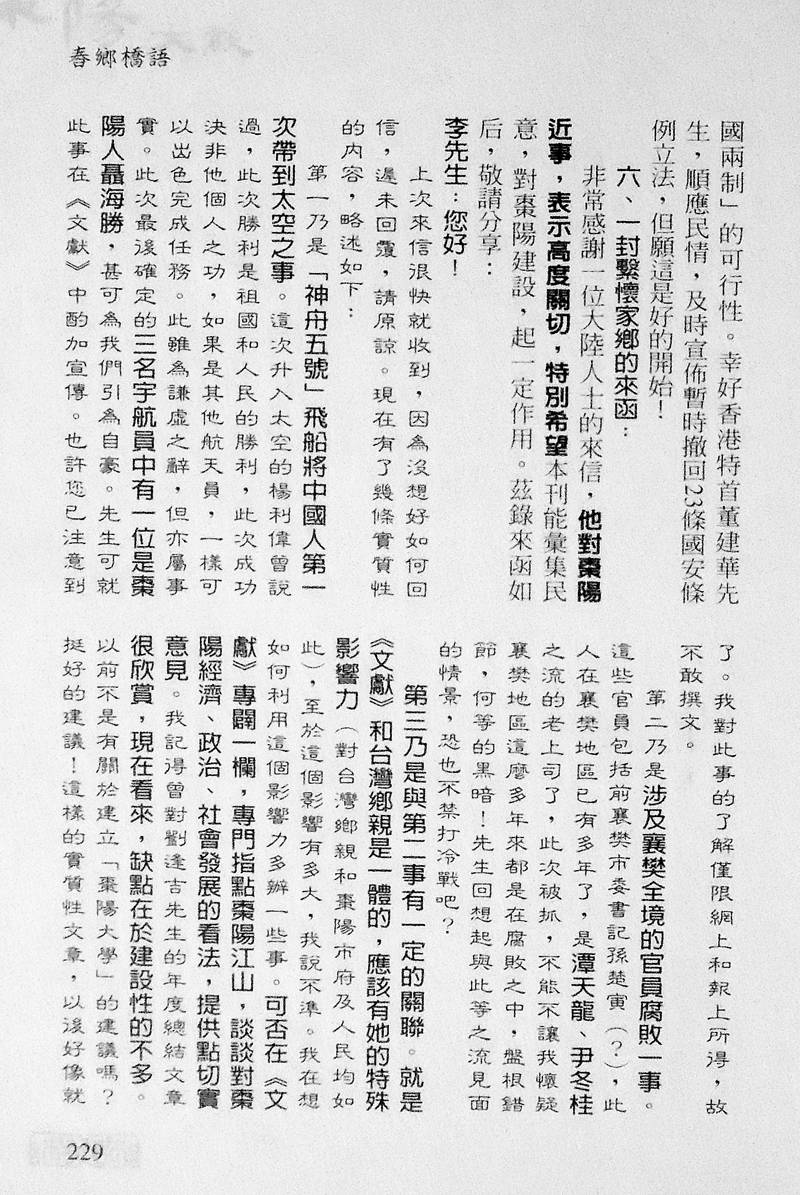 春鄉橋語
國兩制」的可行性。幸好香港特首董建華先
生，順應民情，及時宣佈暫時撤回23條國安條
例立法，但願這是好的開始！
六、一封繫懷家鄉的來函：
非常感謝一位大陸人士的來信，他對棗陽
近事，表示高度關切，特別希望本刊能彙集民
意，對棗陽建設，起一定作用。茲錄來函如
后，敬請分享：
李先生：您好！
上次來信很快就收到，因為沒想好如何回
信，遲未回覆，請原諒。現在有了幾條實質性
的內容，略述如下：
第一乃是「神舟五號」飛船將中國人第一
次帶到太空之事。這次升入太空的楊利偉曾說
過，此次勝利是祖國和人民的勝利，此次成功
決非他個人之功，如果是其他航天員，一樣可
以出色完成任務。此雖為謙虛之辭，但亦屬事
實。此次最後確定的三名宇航員中有一位是棗
陽人聶海勝，甚可為我們引為自豪。先生可就
此事在《文獻》中酌加宣傳。也許您已注意到
了。我對此事的了解僅限網上和報上所得，故
不敢撰文。
第二乃是涉及襄樊全境的官員腐敗一事。
這些官員包括前襄樊市委書記孫楚寅（？），此
人在襄樊地區已有多年了，是潭天龍、尹冬桂
之流的老上司了，此次被抓，不能不讓我懷疑
襄樊地區這麼多年來都是在腐敗之中，盤根錯
節，何等的黑暗！先生回想起與此等之流見面
的情景，恐也不禁打冷戰吧？
第三乃是與第二事有一定的關聯。就是
《文獻》和台灣鄉親是一體的，應該有她的特殊
影響力（對台灣鄉親和棗陽市府及人民均如
此），至於這個影響有多大，我說不準。我在想
如何利用這個影響力多辦一些事。可否在《文
獻》專闢一欄，專門指點棗陽江山，談談對棗
陽經濟、政治、社會發展的看法，提供點切實
意見。我記得曾對劉逢吉先生的年度總結文章
很欣賞，現在看來，缺點在於建設性的不多。
以前不是有關於建立「棗陽大學」的建議嗎？
挺好的建議！這樣的實質性文章，以後好像就
229